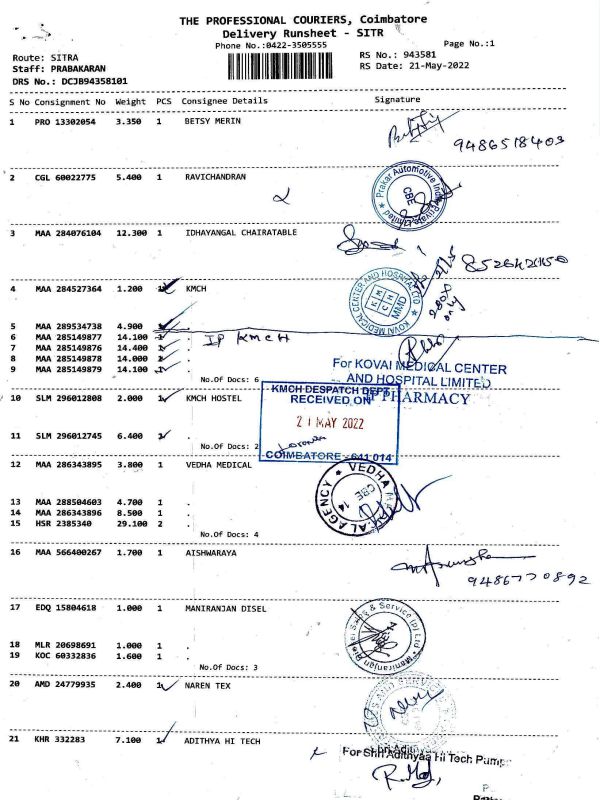 THE PROFESSIONAL COURIERS, Coimbatore
Delivery Runsheet - SITR
Phone No.:0422-3505555
Page No.:1
Route: SITRA
RS No.: 943581
Staff: PRABAKARAN
RS Date: 21-May-2022
DRS No.: DCJB94358101
S No Consignment No Weight PCS Consignee Details Signature
1 PRO 13302054 3.350 1 BETSY MERIN
9486518403
2 CGL 60022775 5.400 1 RAVICHANDRAN
Prakar Automotive Ind Private Limited
CBE
3 MAA 284076104 12.300 1 IDHAYANGAL CHAIRATABLE
4 MAA 284527364 1.200 1 KMCH
KOVAI MEDICAL CENTER AND HOSPITAL LTD
KMCH
MMD
only
5 MAA 289534738 4.900
6 MAA 285149877 14.100 1 .
IP KMCH
7 MAA 285149876 14.400 .
8 MAA 285149878 14.000 2 .
9 MAA 285149879 14.100 1 .
No.Of Docs: 6
For KOVAI MEDICAL CENTER
AND HOSPITAL LIMITED
IP PHARMACY
10 SLM 296012808 2.000 1 KMCH HOSTEL
KMCH DESPATCH DEPT.
RECEIVED ON
21 MAY 2022
COIMBATORE - 641 014
11 SLM 296012745 6.400 .
No.Of Docs: 2
12 MAA 286343895 3.800 1 VEDHA MEDICAL
VEDHA
AL AGENCY
CBE 14
13 MAA 288504603 4.700 1 .
14 MAA 286343896 8.500 1 .
15 HSR 2385340 29.100 2 .
No.Of Docs: 4
16 MAA 566400267 1.700 1 AISHWARAYA
9486770892
17 EDQ 15804618 1.000 1 MANIRANJAN DISEL
Maniranjan Diesel Sales & Service (P) Ltd
18 MLR 20698691 1.000 1 .
19 KOC 60332836 1.600 1 .
No.Of Docs: 3
20 AMD 24779935 2.400 1 NAREN TEX
21 KHR 332283 7.100 1 ADITHYA HI TECH
For Shri Adithyaa Hi Tech Pump